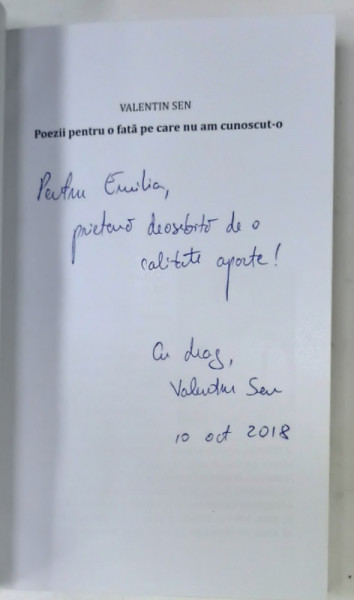 VALENTIN SEN
Poezii pentru o fată pe care nu am cunoscut-o
Pentru Emilia,
prietenă deosebită de o
calitate aparte!
Cu drag,
Valentin Sen
10 oct 2018